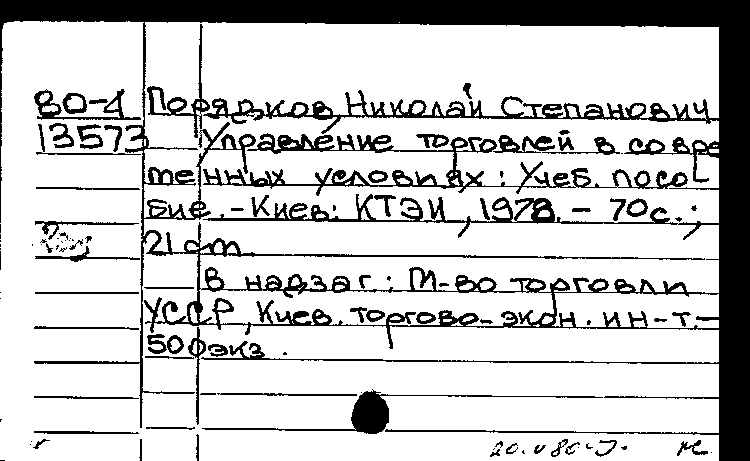 80-4 Порядков, Николай Степанович
13573 Управление торговлей в совре
менных условиях : Учеб. посо-
бие. - Киев: КТЭИ, 1978. - 70с.;
21 см.
В надзаг.: М-во торговли
УССР, Киев. торгово-экон. ин-т. -
500 экз.